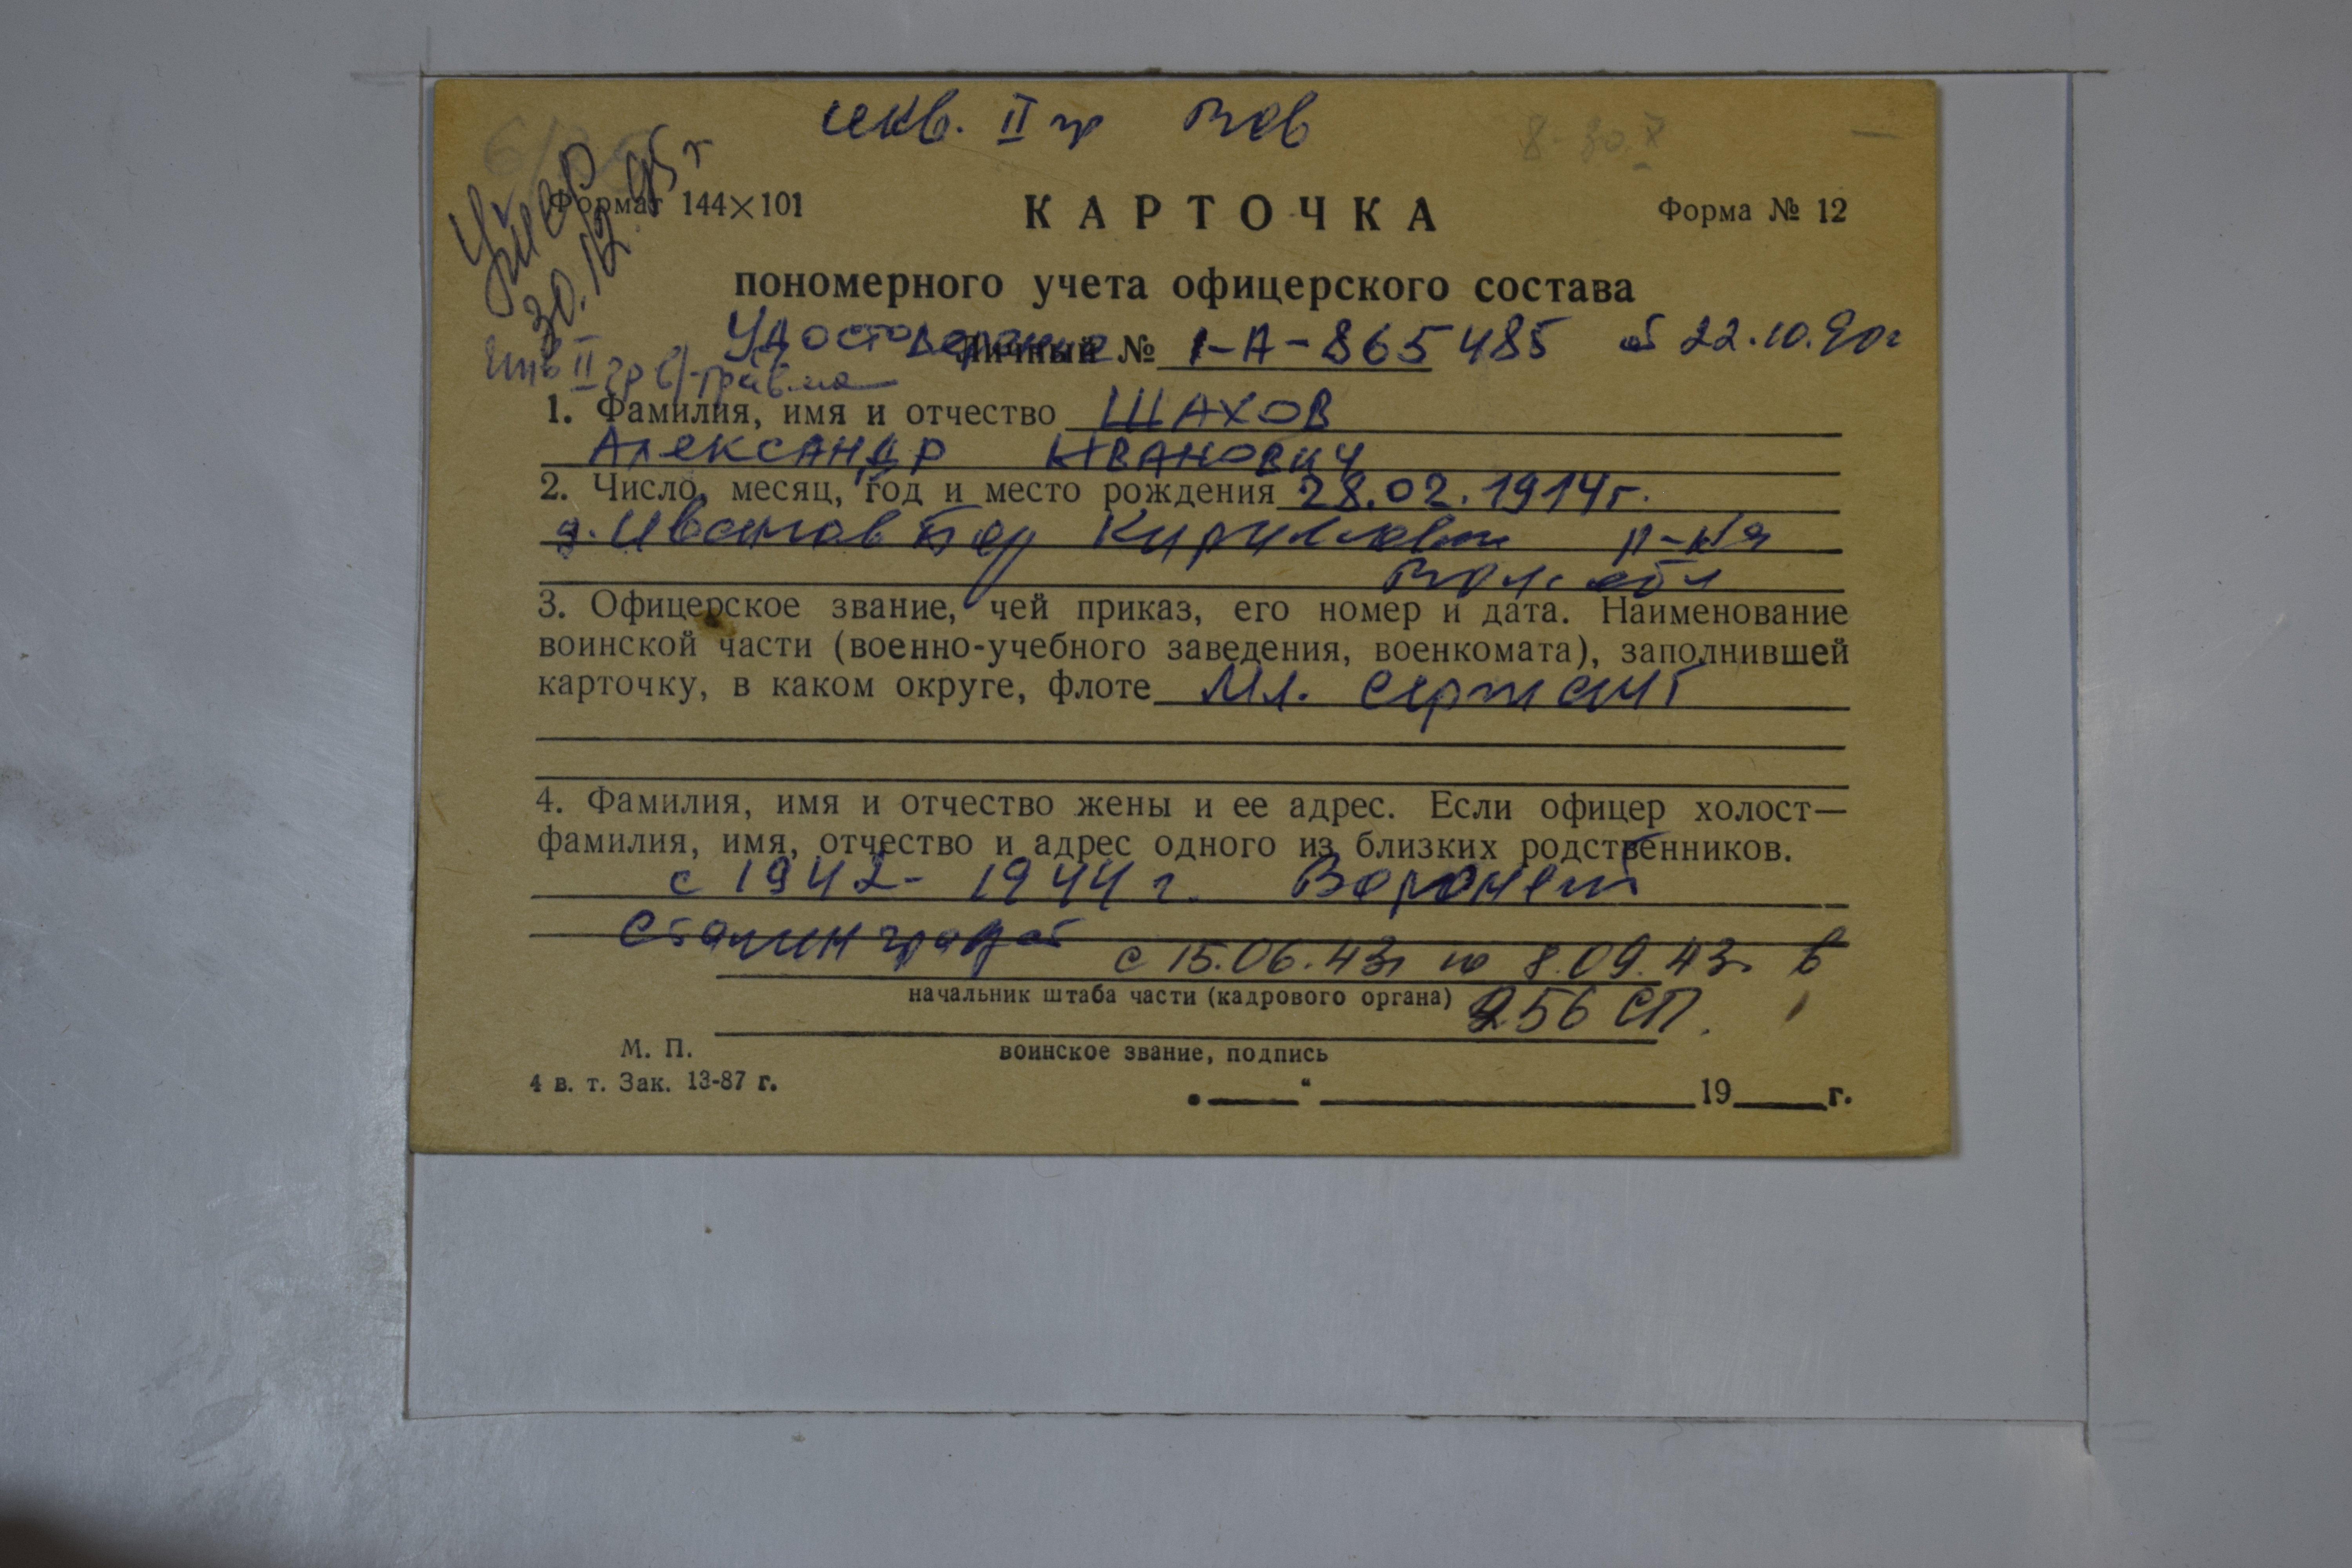 инв. II гр ВОВ
Умер
30.12.95 г
Формат 144×101
КАРТОЧКА
Форма № 12
пономерного учета офицерского состава
Удостоверение
Личный № 1-А-865485 от 22.10.90г
Инв II гр в/травма
1. Фамилия, имя и отчество ШАХОВ
Александр Иванович
2. Число, месяц, год и место рождения 28.02.1914г.
р-на
Вол. обл
3. Офицерское звание, чей приказ, его номер и дата. Наименование
воинской части (военно-учебного заведения, военкомата), заполнившей
карточку, в каком округе, флоте Мл. сержант
4. Фамилия, имя и отчество жены и ее адрес. Если офицер холост—
фамилия, имя, отчество и адрес одного из близких родственников.
с 1942 - 1944 г. Воронеж
Сталинград
с 15.06.43г по 8.09.43г в
начальник штаба части (кадрового органа)
256 СП.
М. П.
воинское звание, подпись
4 в. т. Зак. 13-87 г.
„ “ 19 г.